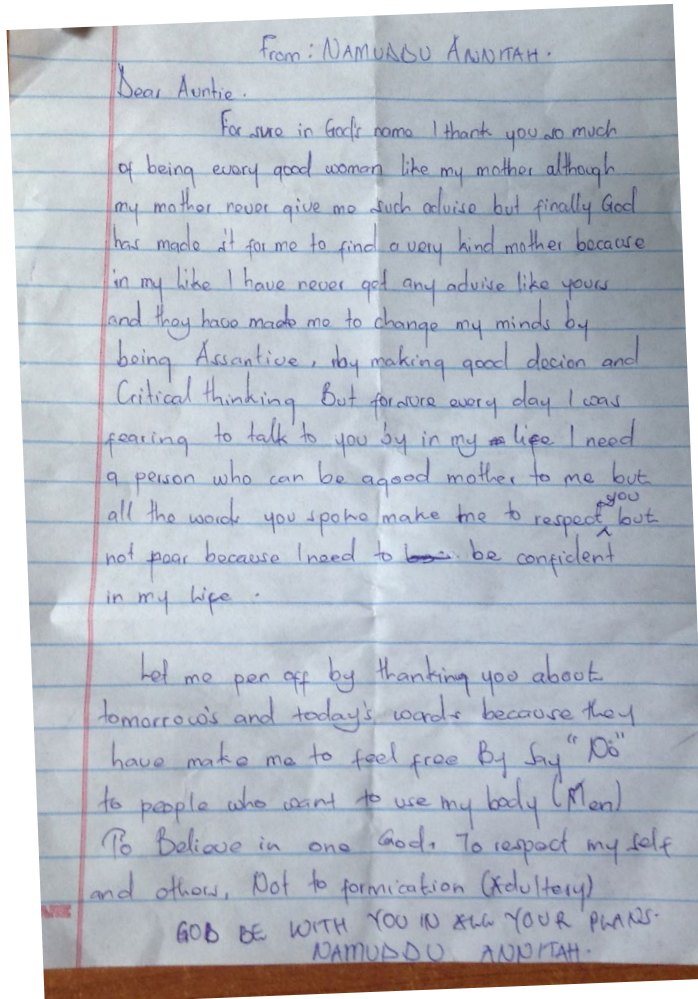 From: NAMUDDU ANNITAH.
Dear Auntie.
For sure in God's name I thank you so much
of being every good woman like my mother although
my mother never give me such advise but finally God
has made it for me to find a very kind mother because
in my like I have never get any advise like yours
and they have made me to change my minds by
being Assantive, by making good decion and
Critical thinking But for sure every day I was
fearing to talk to you by in my life I need
a person who can be a good mother to me but
all the words you spoke make me to respect you but
not fear because I need to be confident
in my life.
Let me pen off by thanking you about
tomorrow's and today's words because they
have make me to feel free By Say "No"
to people who want to use my body (Men)
To Believe in one God. To respect my self
and others. Not to formication (Adultery)
GOD BE WITH YOU IN ALL YOUR PLANS.
NAMUDDU ANNITAH.